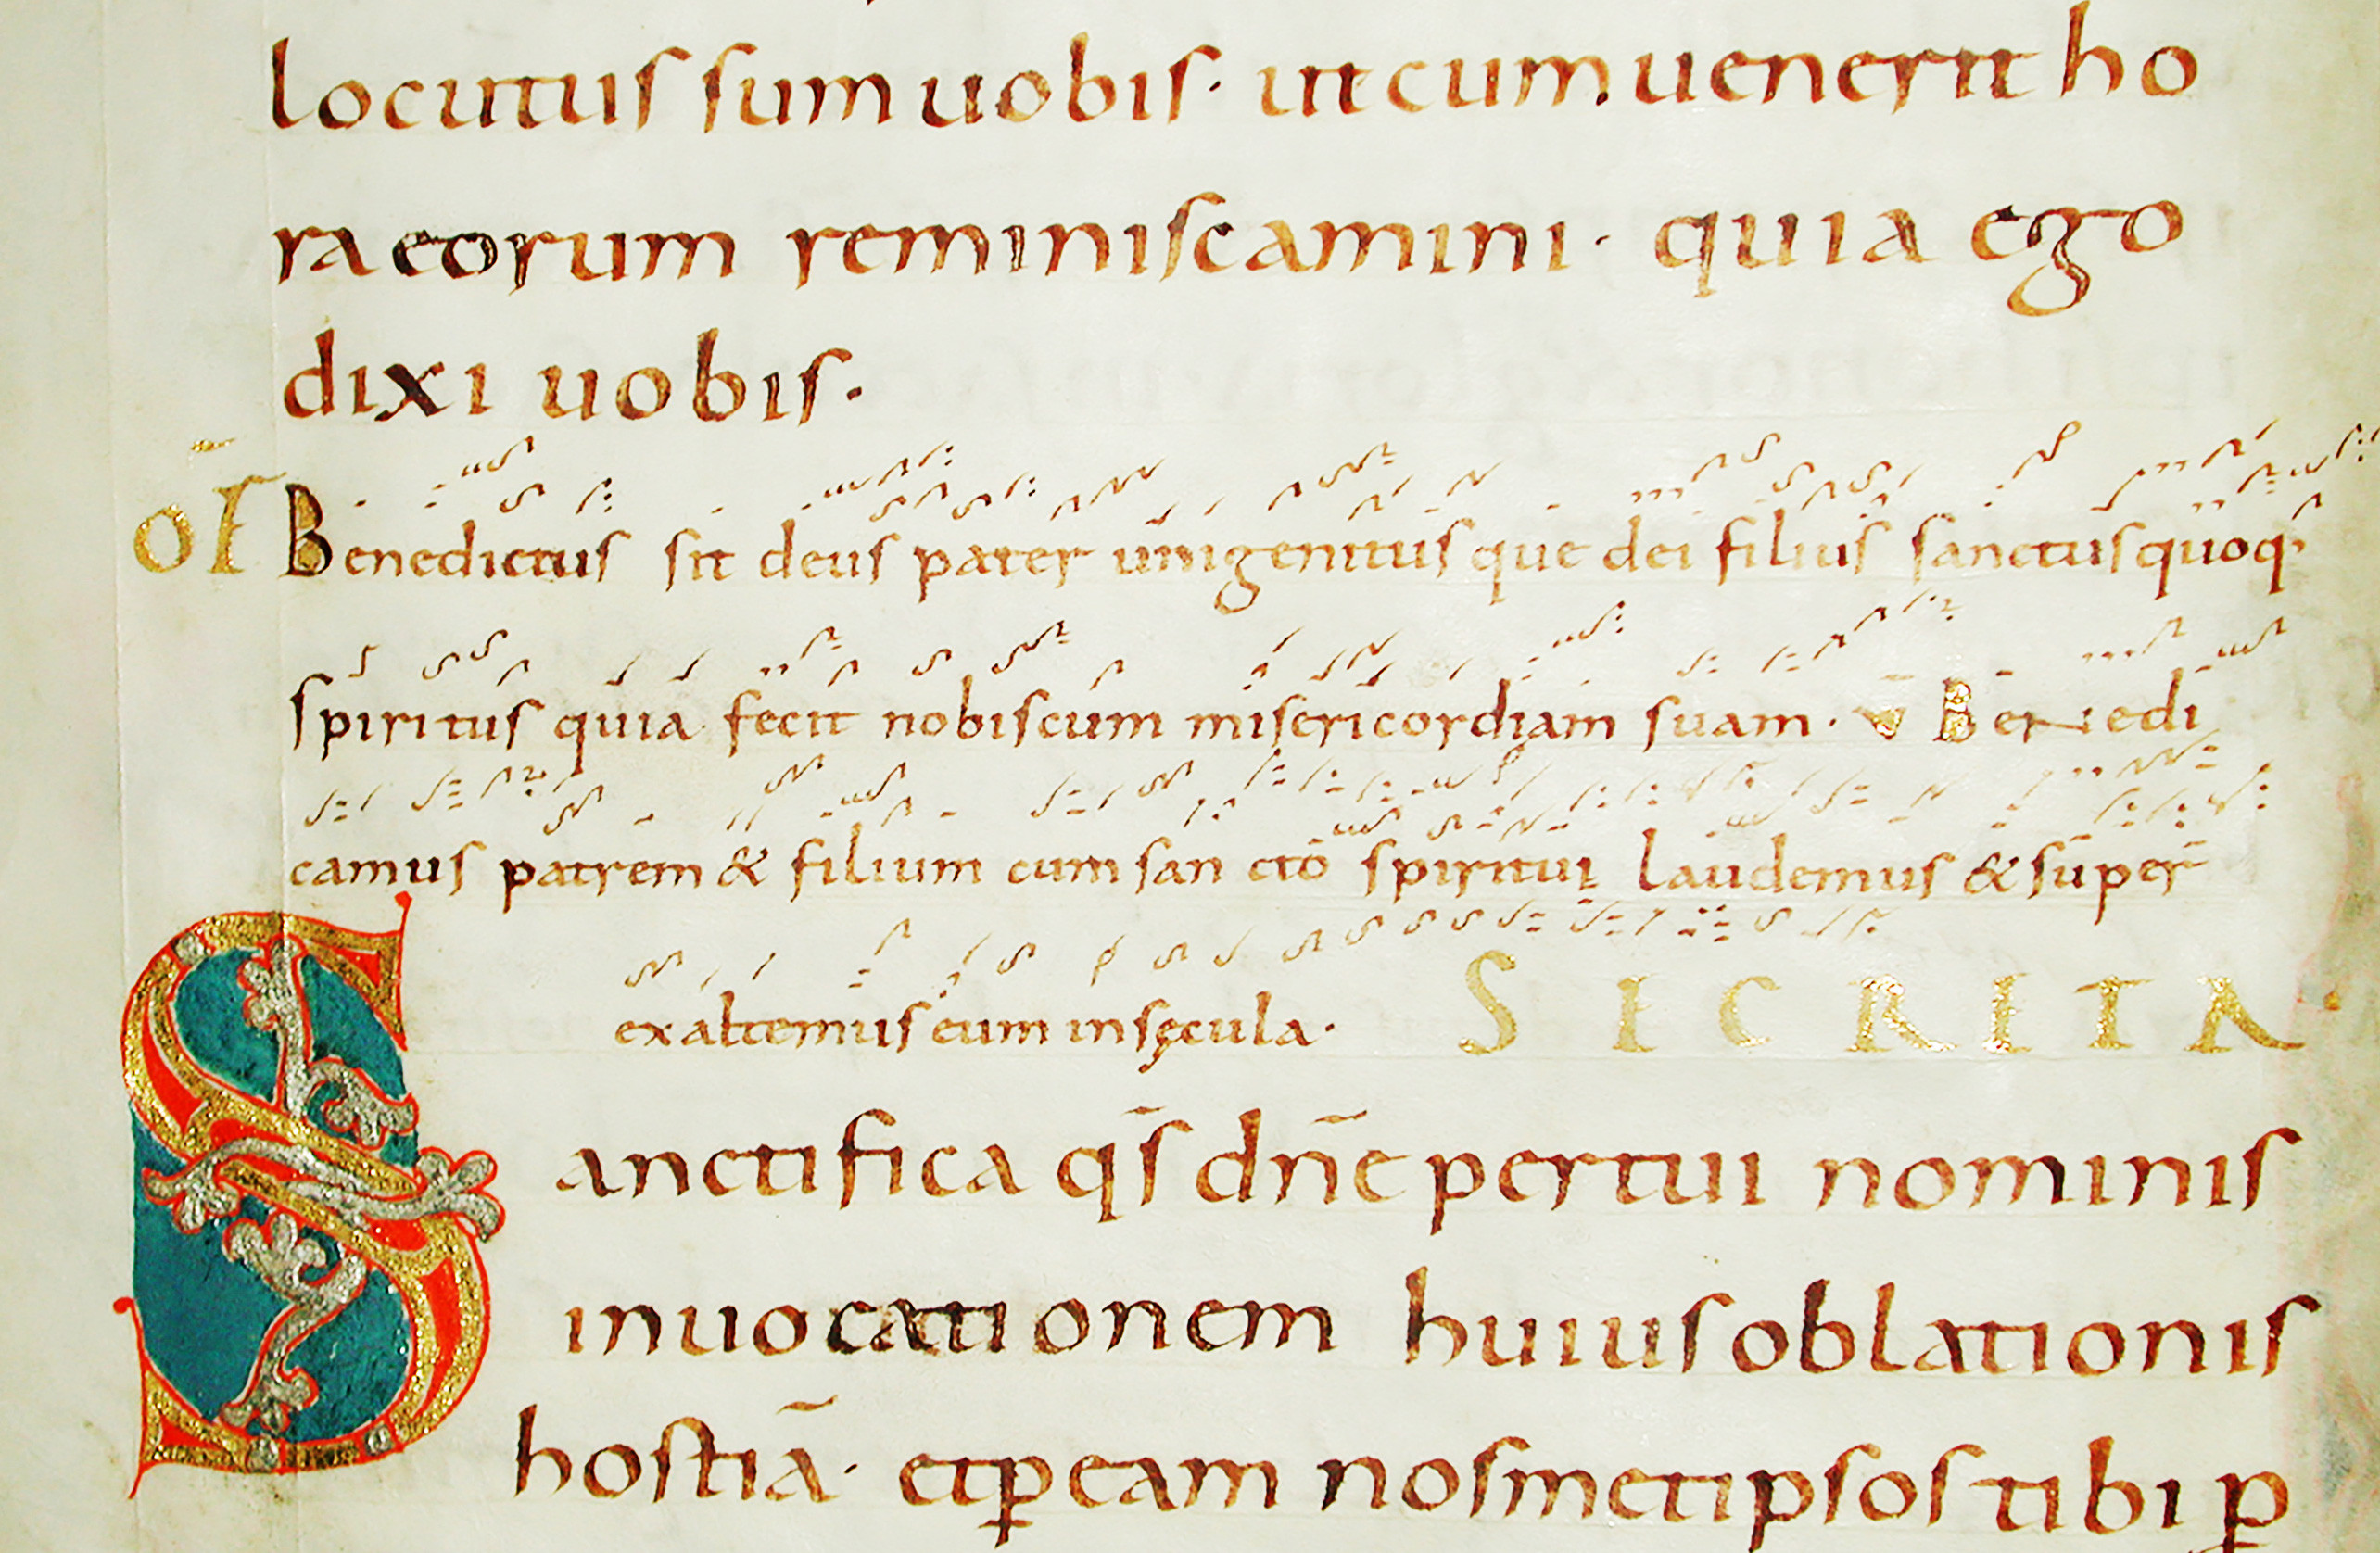 locutus sum uobis · ut cum uenerit ho
ra eorum reminiscamini · quia ego
dixi uobis ·
OF Benedictus sit deus pater unigenitus que dei filius sanctus quoq;
spiritus quia fecit nobiscum misericordiam suam · V Benedi
camus patrem & filium cum san cto spiritui laudemus & super
exaltemus eum in sęcula · SECRETA
Sanctifica qs̄ dn̄e per tui nominis
inuocationem huius oblationis
hostiā · et ꝑ eam nosmetipsos tibi ꝑ